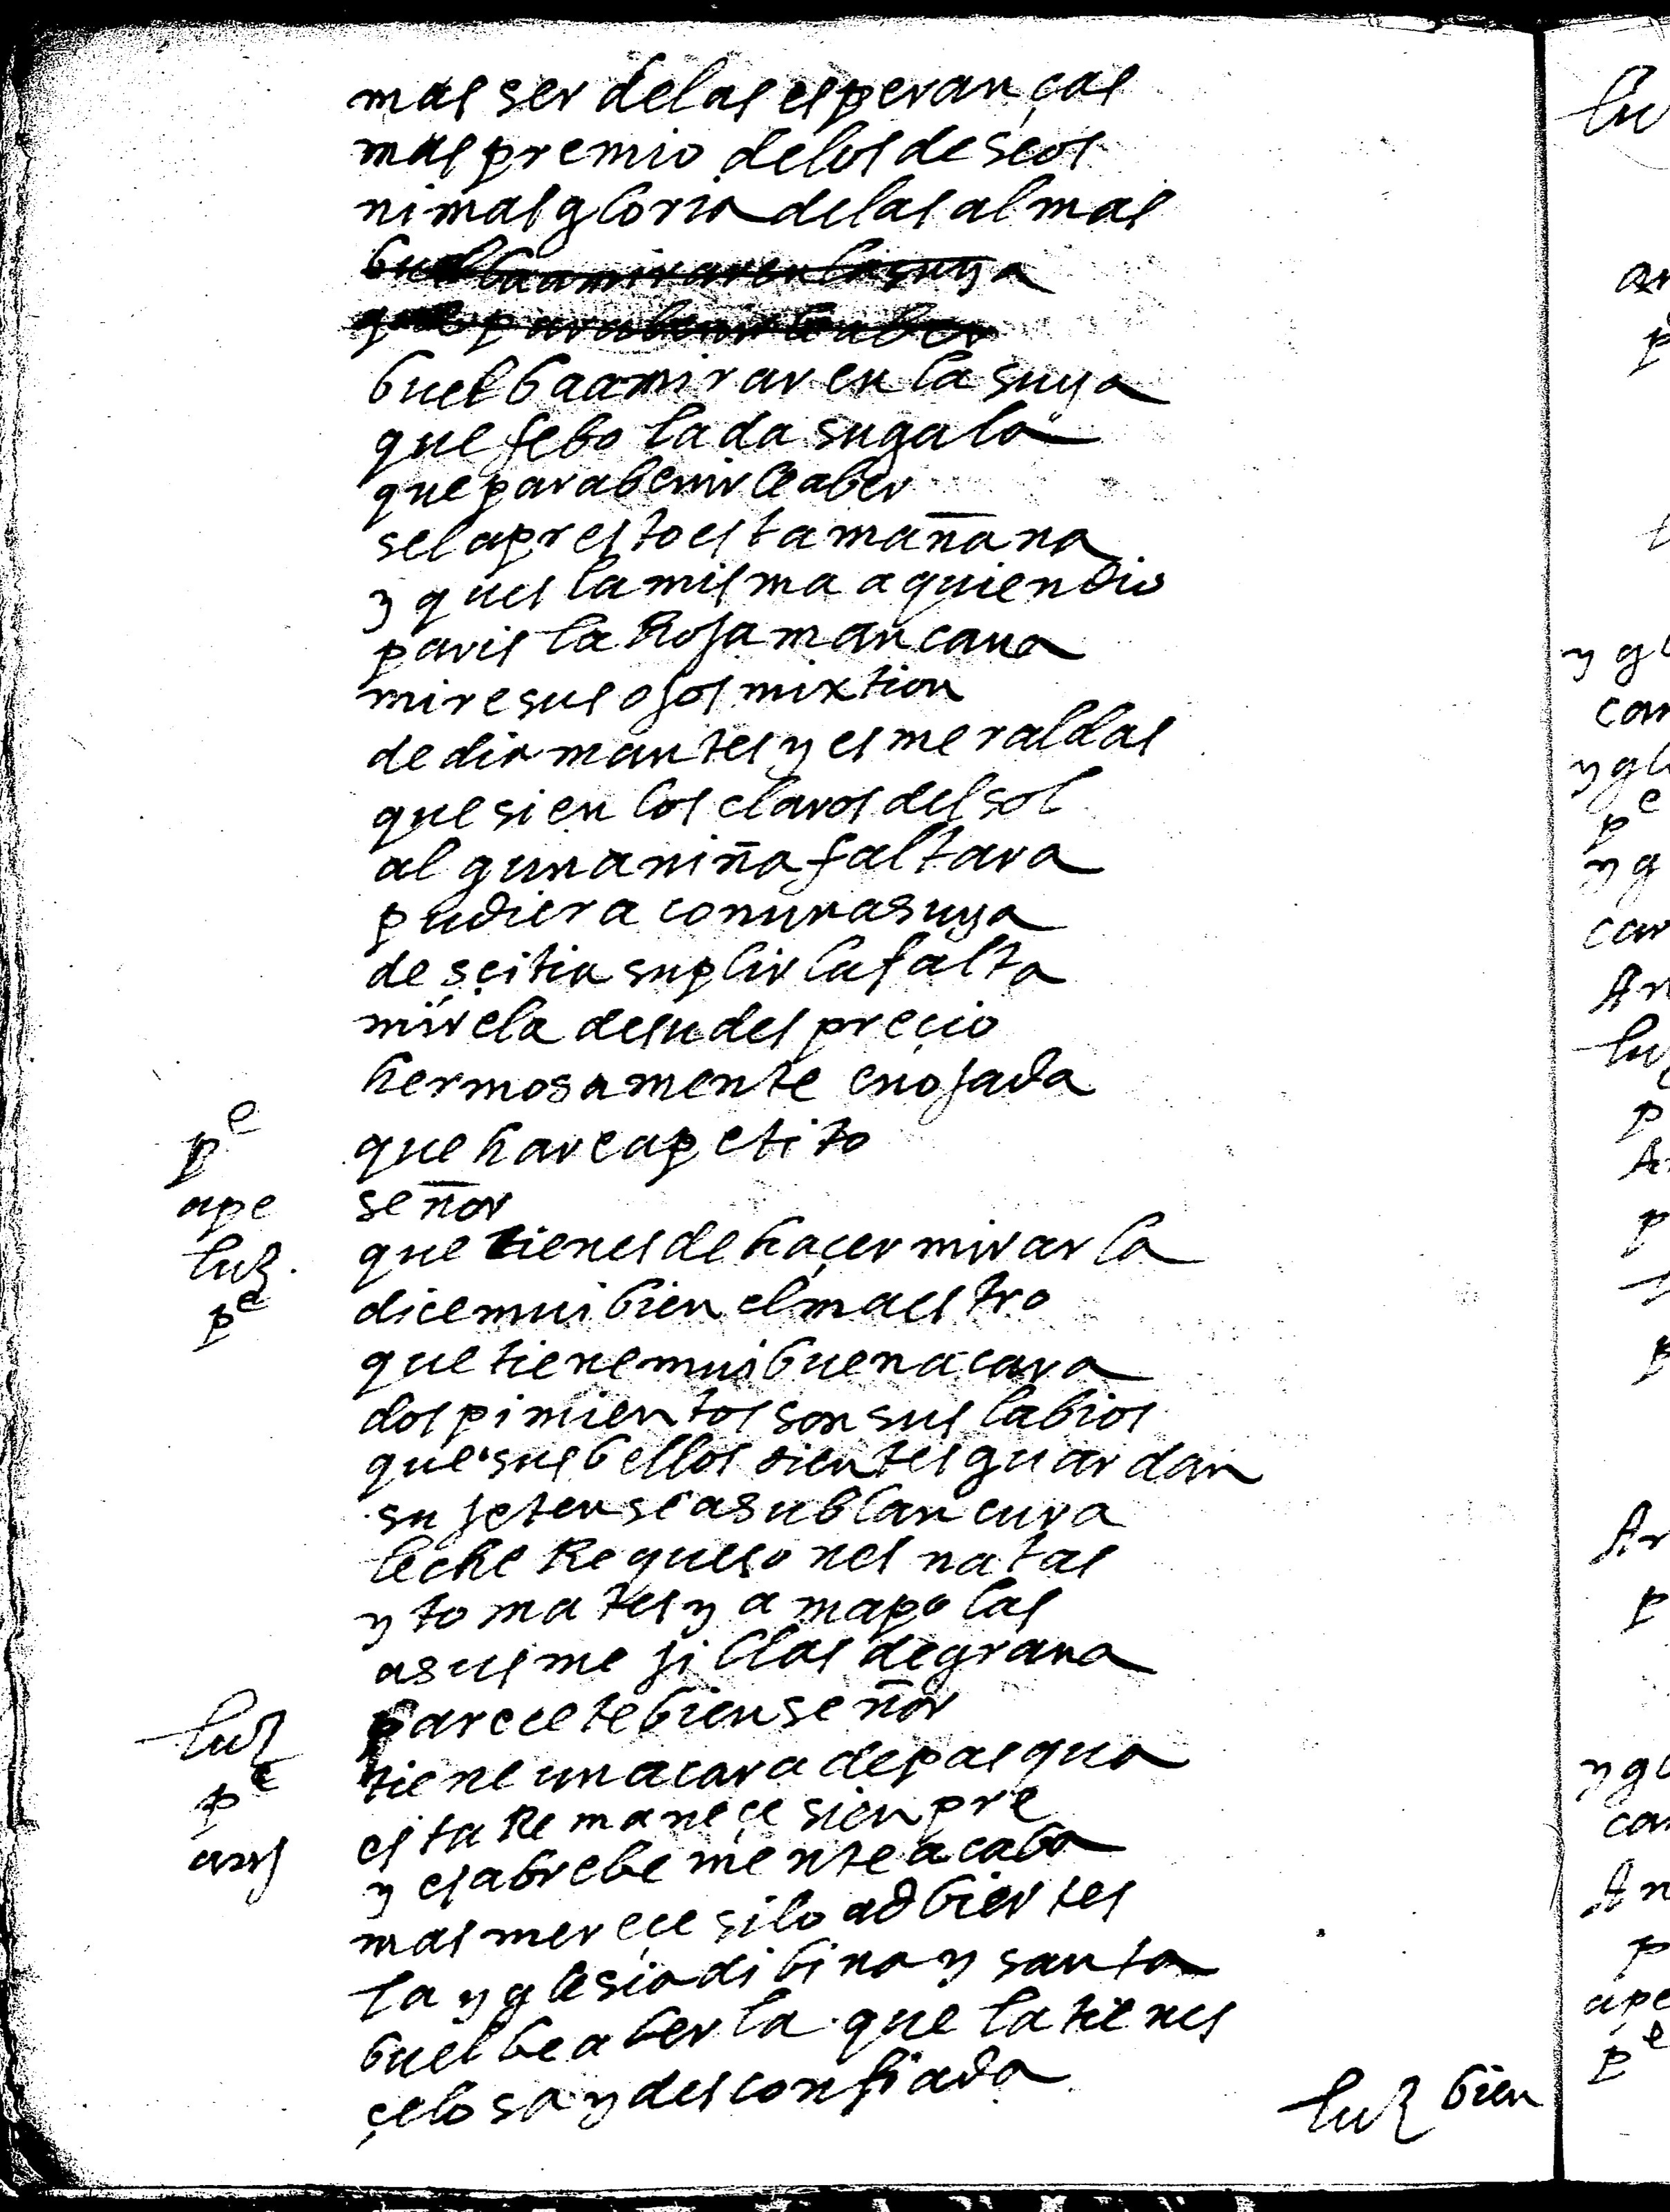 mas ser de las esperanças
mas premio de los deseos
ni mas gloria de las almas
buelba a mirar en la suya
que para benirle a ber
buelba a mirar en la suya
que febo la da su gala
que para benirle a ber
se la presto esta mañana
y ques la misma a quien dio
paris la Roja mançana
mire sus ojos mixtion
de diamantes y esmeraldas
que si en los claros del sol
alguna niña faltara
pudiera con una suya
de scitia suplir la falta
mirela de su desprecio
hermosamente enojada
pe que hare apetito
ape señor
luz. que tienes de haçer mirarla
pe dice mui bien el maestro
que tiene mui buena cara
dos pimientos son sus labios
que sus bellos dientes guardan
sujetense a su blancura
leche Requesones natas
y tomates y amapolas
a sus mejillas de grana
luz parecete bien señor
pe tiene una cara de pasqua
anj esta Remaneçe sienpre
y esa brebemente acaba
mas mereçe si lo adbiertes
la yglesia dibina y santa
buelbe a berla que la tienes
çelosa y desconfiada
luz bien